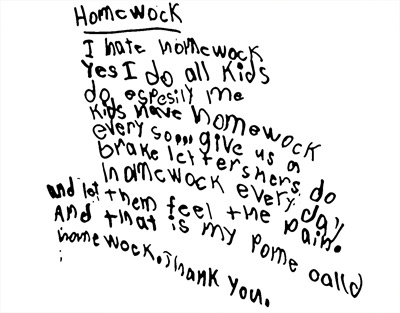 Homewock
I hate homewock
Yes I do all kids
do espesily me
kids have homewock
every so,,,, give us a
brake let tershers do
homewock every day
and let them feel the pain.
And that is my pome calld
homewock. Thank you.